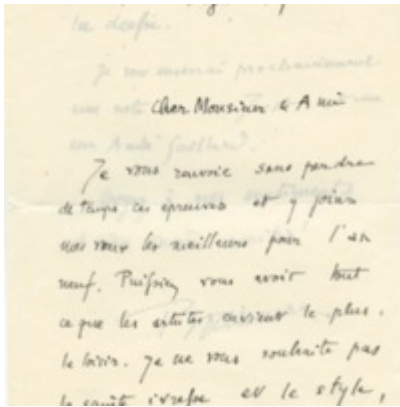 Cher Monsieur & Ami
Je vous renvoie sans perdre
de temps ces épreuves et y joins
nos vœux les meilleurs pour l'an
neuf. Puissiez vous avoir tout
ce que les artistes envient le plus.
le loisir. Je ne vous souhaite pas
la santé et le style,